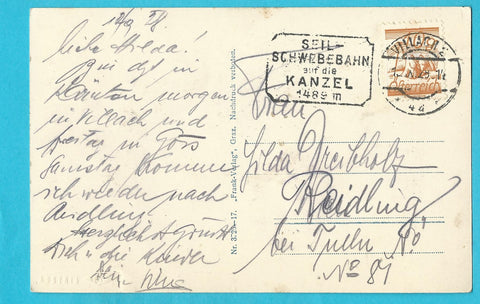 12/9 28.
liebe Hilda!
gut in
Kärnten morgen
in Villach und
freitag in
samstag komme
ich wieder nach
Reidling.
herzlichst grüsst
Dich u. die Kinder
SEIL=
SCHWEBEBAHN
auf die
KANZEL
1489 m
VILLACH 2
Österreich
Nr. 3.28—17. „Frank-Verlag“, Graz. Nachdruck verboten.
Frau
Hilda Dreibholz
Reidling
bei Tulln NÖ
No 81